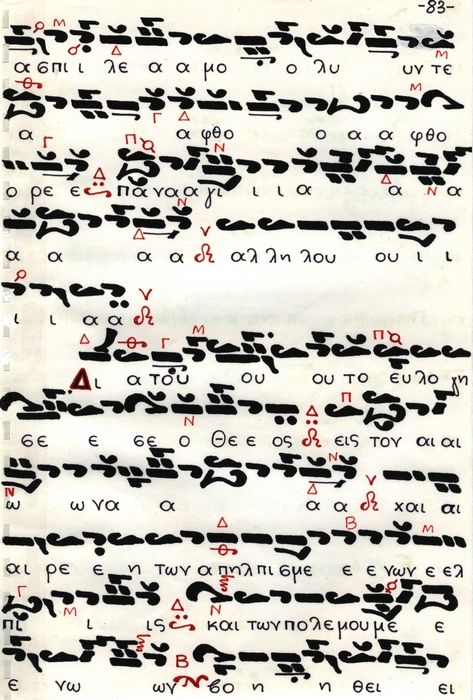 -83-
α σπι ι λε α α μο ο λυ υν τε
α α φθο ο α α φθο
ρε ε πα να α γι ι ι α α α να
α α α α αλ λη λου ου ι ι
ι ι α α
Δι α του ου ου το ευ λο γη
σε ε σε ο Θε ε ος εις τον αι αι
ω ω να α α α και αι
αι ρε ε η των α πηλ πι σμε ε ε νων ε ελ
πι ι ις και των πο λε μου με ε
ε νω ων βο η η θει ει